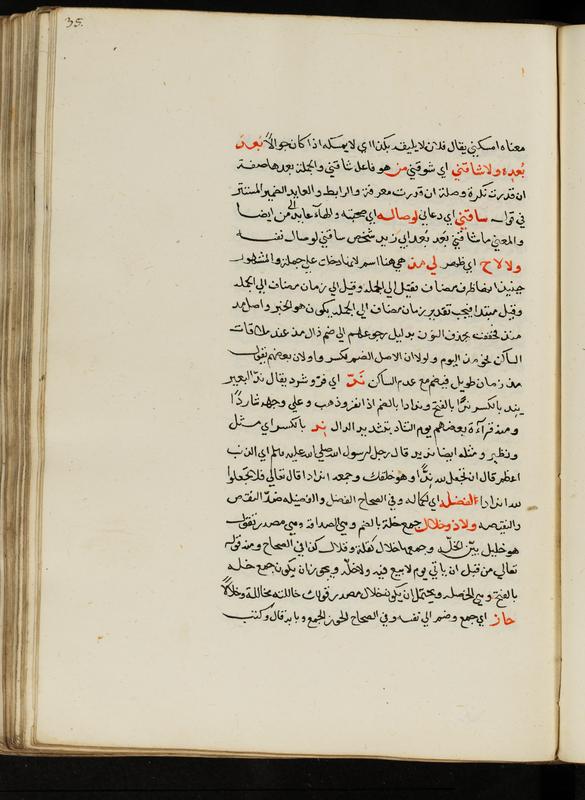 35.
معناه امسكني يقال فلان لا يليق بكذا اي لا يمسكه اذا كان جوالا بعد
بعده ولا شاقني اي شوقني من هو فاعل شاقني والجملة بعدها صفة
ان قدرت نكرة وصلة ان قدرت معرفة والرابط والعايد الضمير المستتر
في قوله ساقني اي دعاني لوصاله اي صحبته والهاء عايد الى من ايضا
والمعنى ما شاقني بعد بعد ابي زيد شخص ساقني لوصال نفسه
ولا لاح اي ظهر لي مذ هي هنا اسم لانها دخلت على جملة والمشهور
حينئذ انها ظرف مضاف فقيل الى الجملة وقيل الى زمان مضاف الى الجملة
وقيل مبتدا فيجب تقدير زمان مضاف الى الجملة يكون هو الخبر واصل مذ
منذ فخففت بحذف النون بدليل رجوعهم الى ضم ذال مذ عند ملاقات
الساكن نحو مذ اليوم ولولا ان الاصل الضم لكسر ولان بعضهم يقول
مذ زمان طويل فيضم مع عدم الساكن ند اي فر وشرد يقال ند البعير
يند بالكسر ندا بالفتح وندادا بالضم اذا نفر وذهب وعلى وجهه شاردا
ومنه قراءة بعضهم يوم التناد بتشديد الدال ند بالكسر اي مثل
ونظير ومثله ايضا نديد قال رجل لرسول الله صلى الله عليه وسلم اي الذنب
اعظم قال ان تجعل لله ندا وهو خلقك وجمعه انداد قال تعالى فلا تجعلوا
لله اندادا الفضله اي لكماله وفي الصحاح الفضل والفضيله ضد النقص
والنقيصه ولا ذو خلال جمع خلة بالضم وهي الصداقة وهي مصدر تقول
هو خليل بين الخلة وجمعها خلال كقلة وقلال كذا في الصحاح ومنه قوله
تعالى من قبل ان ياتي يوم لا بيع فيه ولا خلة ويجوز ان يكون جمع خلة
بالفتح وهي الخصله ويحتمل ان يكون خلال مصدر قولك خاللته مخاللة وخلالا
حاز اي جمع وضم الى نفسه وفي الصحاح الحوز الجمع وبابه قال وكتب